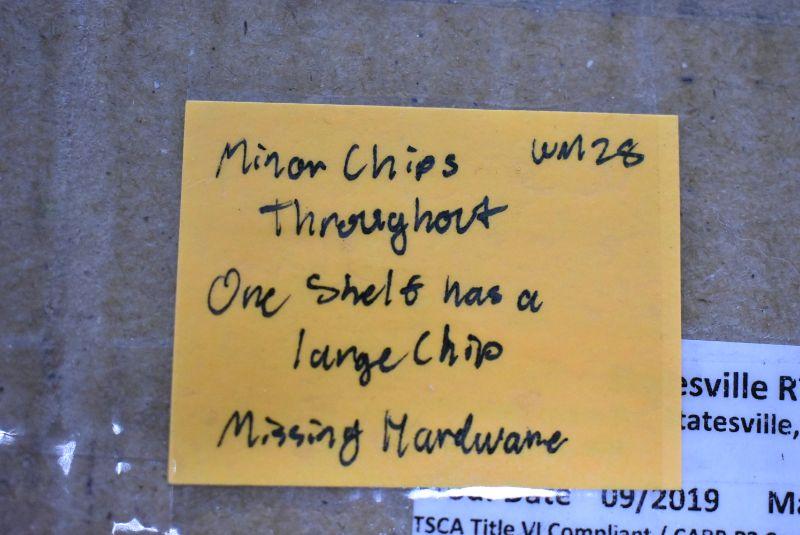 Minor Chips WM28
Throughout
One Shelf has a
large Chip
Missing Hardware
esville R
tatesville,
Date 09/2019 Ma
TSCA Title VI Compliant / CARB P2